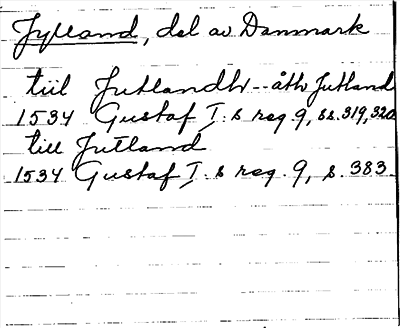 Jylland, del av Danmark
tiil Jutlandh - åth Jutland
1534 Gustaf I:s reg. 9, ss. 319, 320
till Jutland
1534 Gustaf I:s reg. 9, s. 383